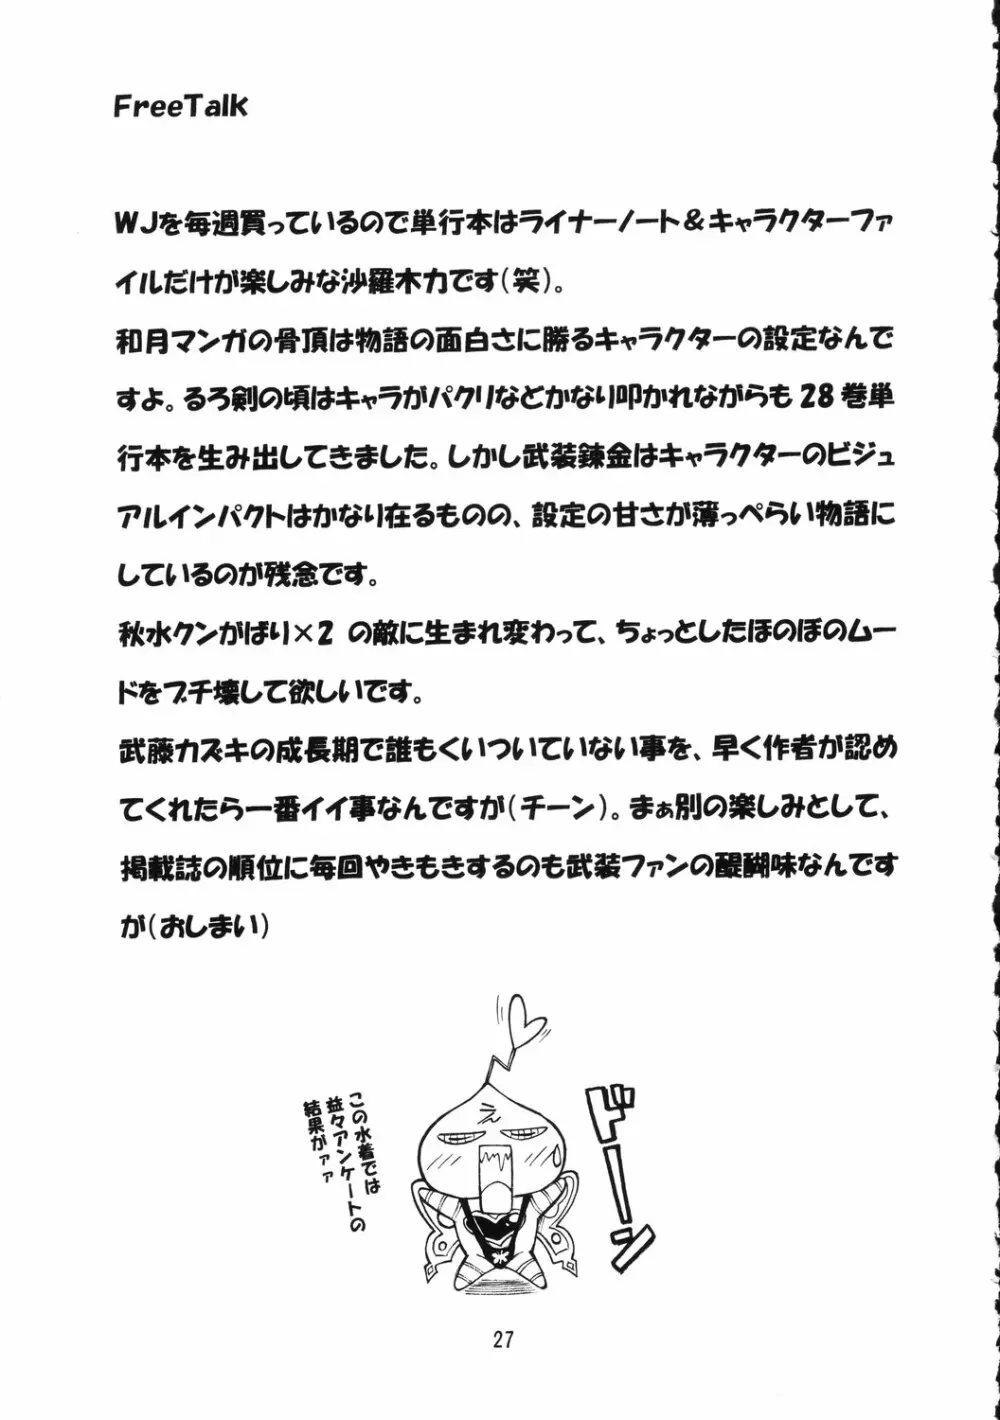 FreeTalk
WJを毎週買っているので単行本はライナーノート＆キャラクターファ
イルだけが楽しみな沙羅木力です(笑)。
和月マンガの骨頂は物語の面白さに勝るキャラクターの設定なんで
すよ。るろ剣の頃はキャラがパクリなどかなり叩かれながらも28巻単
行本を生み出してきました。しかし武装錬金はキャラクターのビジュ
アルインパクトはかなり在るものの、設定の甘さが薄っぺらい物語に
しているのが残念です。
秋水クンがばり×2 の敵に生まれ変わって、ちょっとしたほのぼのムー
ドをブチ壊して欲しいです。
武藤カズキの成長期で誰もくいついていない事を、早く作者が認め
てくれたら一番イイ事なんですが(チーン)。まぁ別の楽しみとして、
掲載誌の順位に毎回やきもきするのも武装ファンの醍醐味なんです
が(おしまい)
この水着では
益々アンケートの
結果がァァ
ドーン
え
27